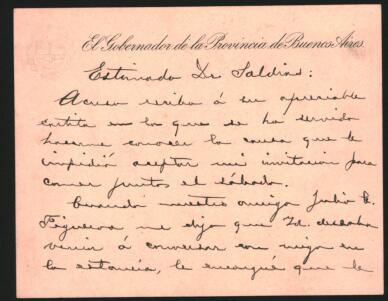 El Gobernador de la Provincia de Buenos Aires
Estimado Dr Saldias:
Acuso recibo á su apreciable
cartita en la que se ha servido
hacerme conocer la causa que le
impidió aceptar mi invitacion para
comer juntos el sábado.
Cuando nuestro amigo Julio
Figueroa me dijo que Vd. deseaba
venir á conversar con migo en
la estancia, le encargué que le